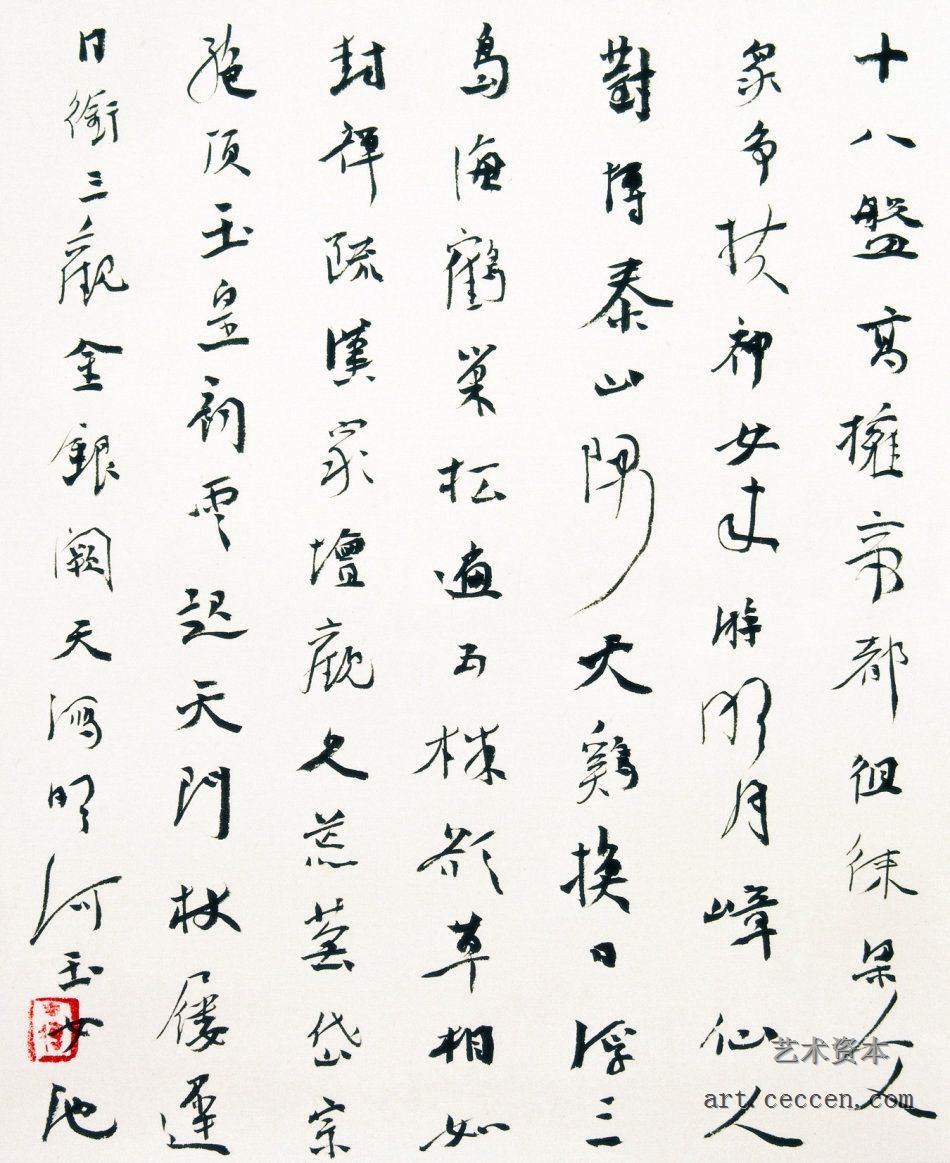 十八盤高擁帝都徂徠梁父
眾爭扶神女来游明月嶂仙人
對博泰山隅天鷄換日浮三
島海鶴巢松遍五株欲草相如
封禪疏漢家壇觀久荒蕪岱宗
絕頂玉皇祠雲起天門杖屨遲
日銜三觀金銀闕天瀉明河玉女池
艺术资本
art.ceccen.com